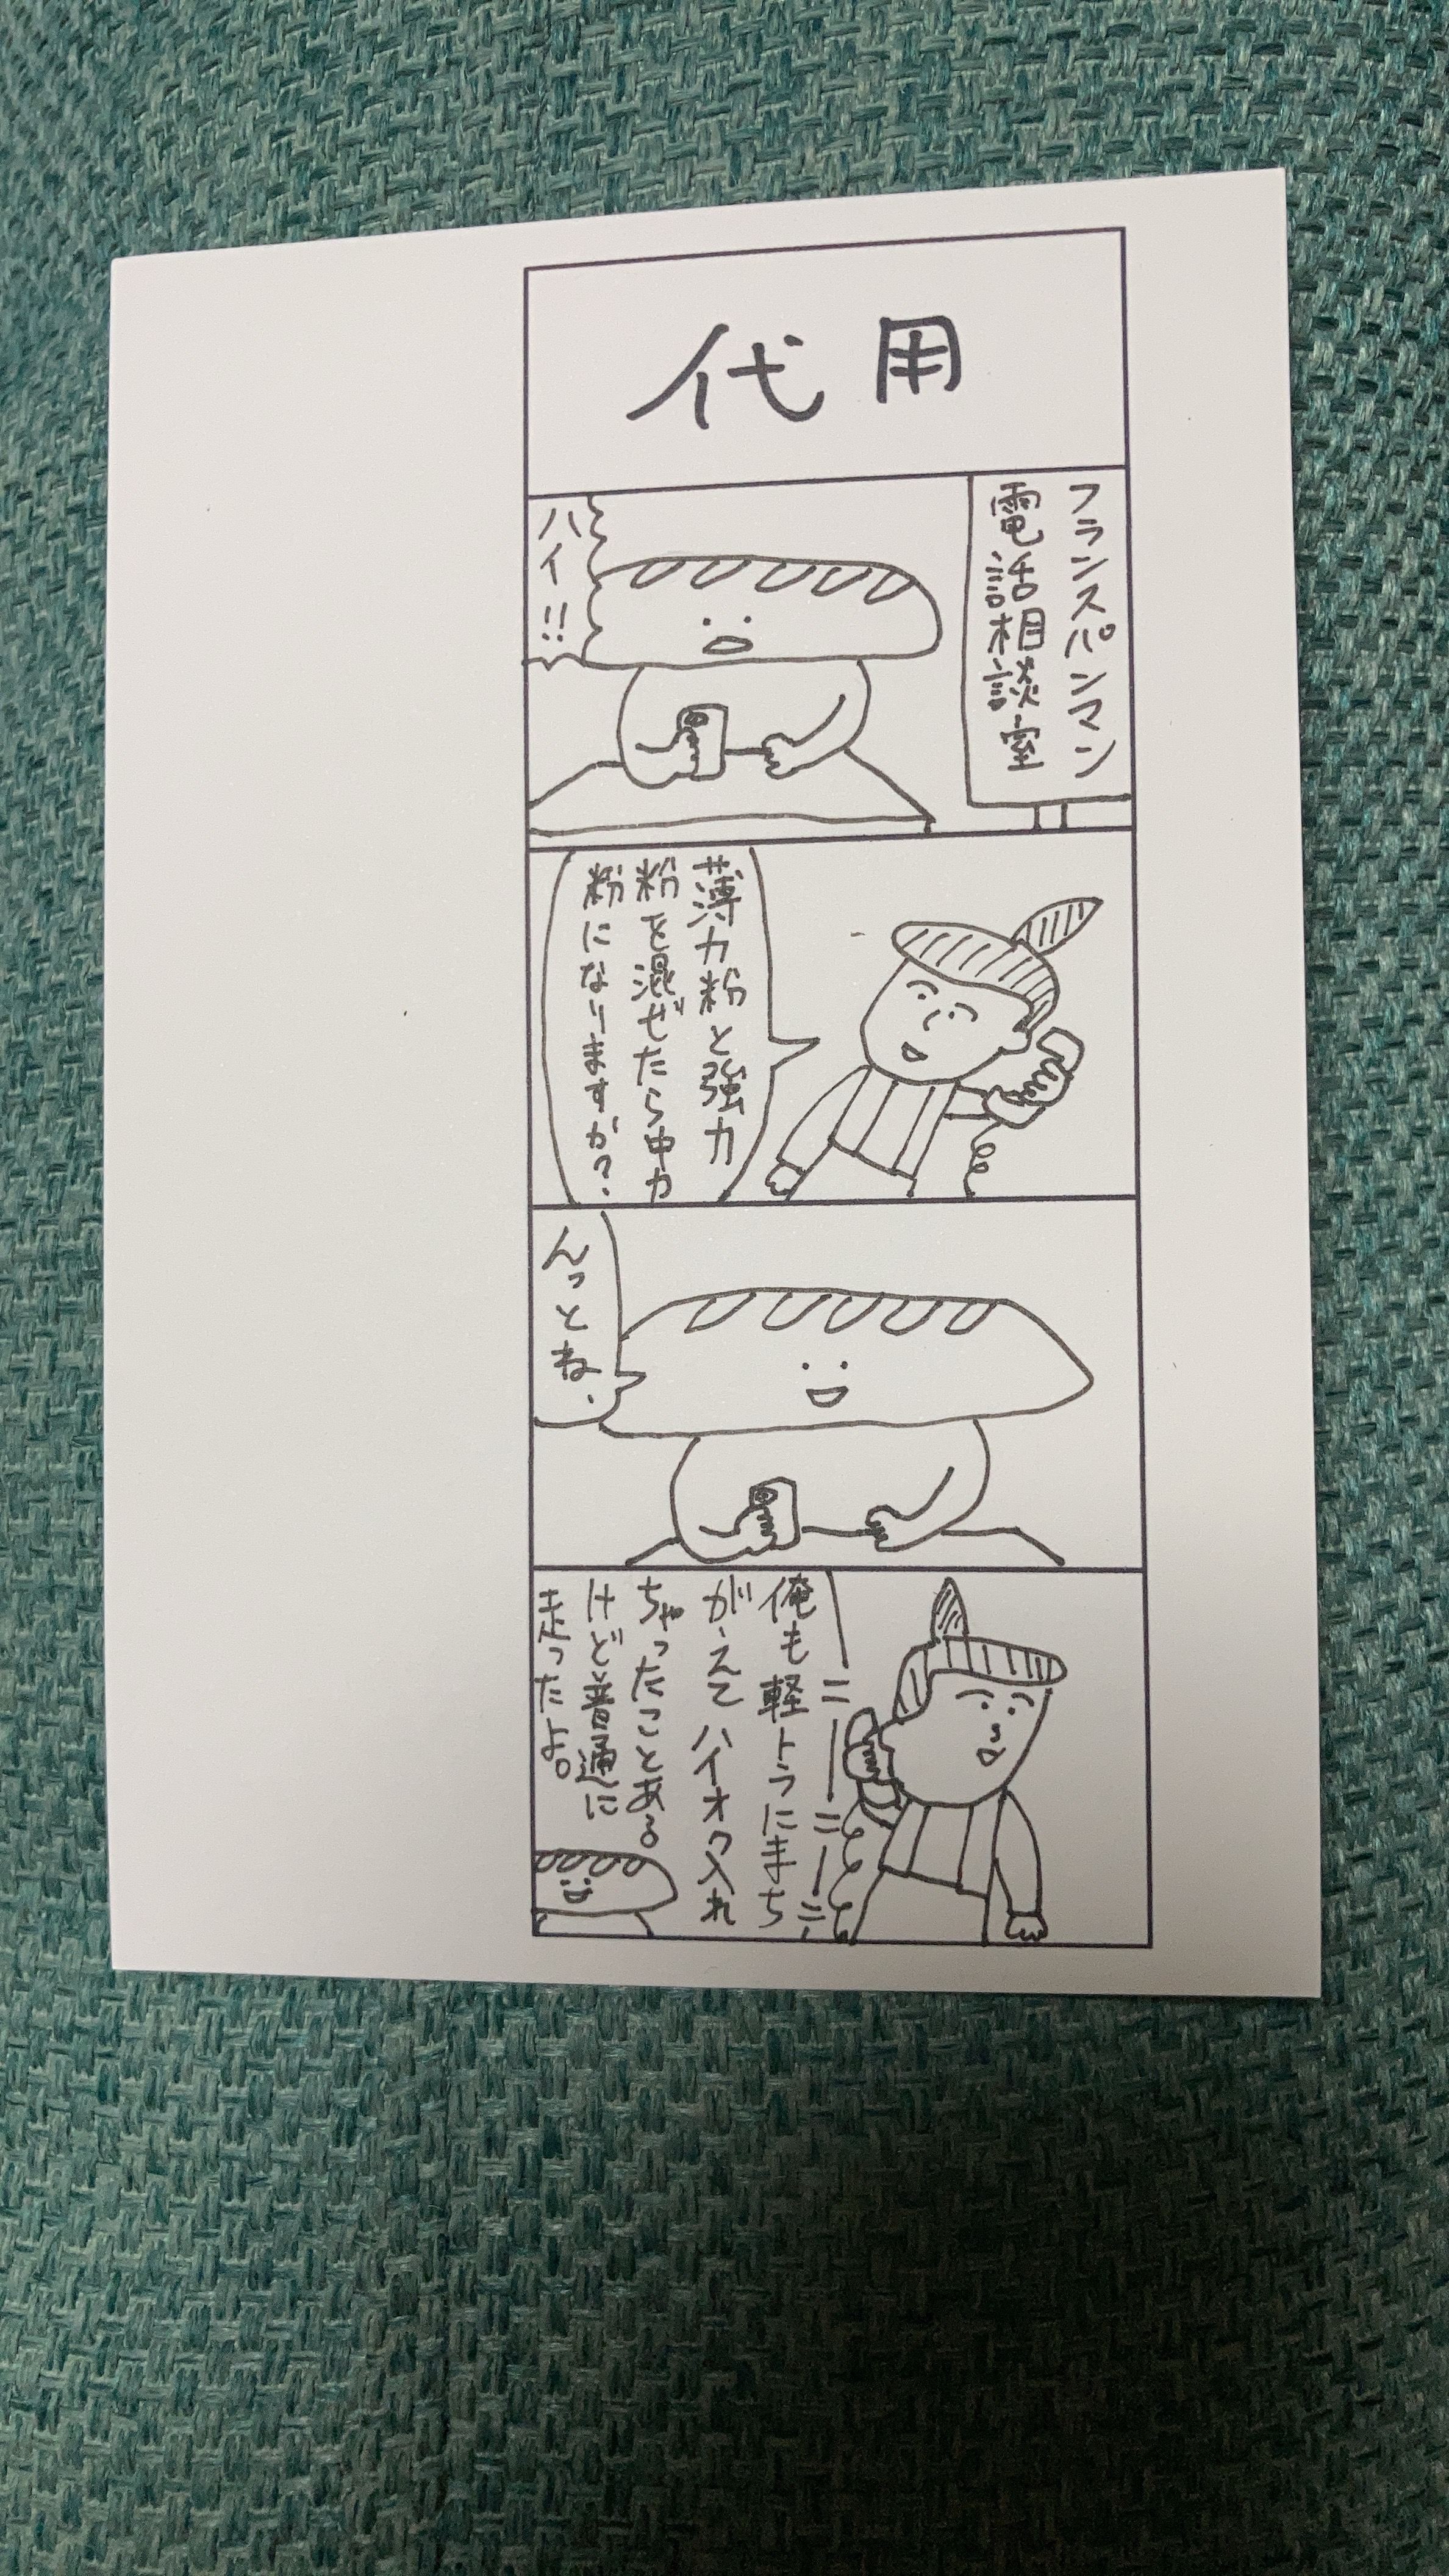 代用
フランスパンマン
電話相談室
ハイ!!
薄力粉と強力
粉を混ぜたら中力
粉になりますか?
んっとね、
俺も軽トラにまち
がえてハイオク入れ
ちゃったことある
けど普通に
走ったよ。